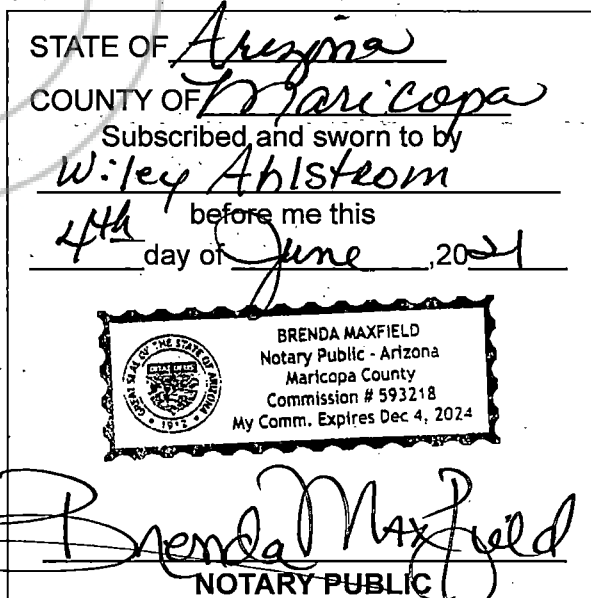 STATE OF Arizona
COUNTY OF Maricopa
Subscribed and sworn to by
Wiley Ahlstrom
before me this
4th day of June, 2021
GREAT SEAL OF THE STATE OF ARIZONA
1912
BRENDA MAXFIELD
Notary Public - Arizona
Maricopa County
Commission # 593218
My Comm. Expires Dec 4, 2024
Brenda Maxfield
NOTARY PUBLIC